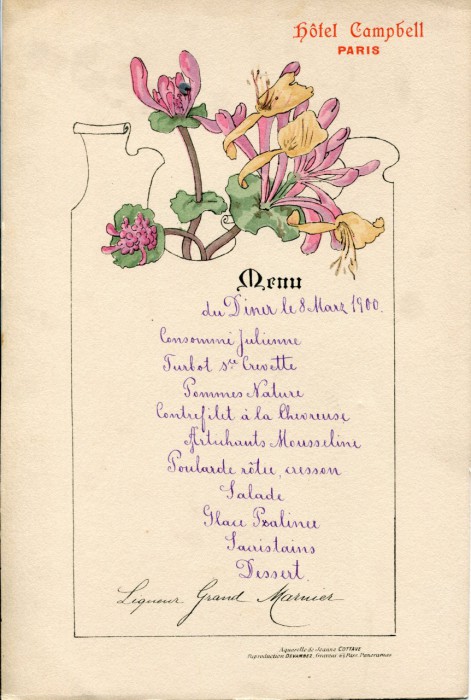 Hôtel Campbell
PARIS
Menu
du Diner le 8 Marz 1900.
Consommé Julienne
Turbot sce Crevette
Pommes Nature
Contrefilet à la Chevreuse
Artichauts Mousseline
Poularde rôtie, cresson
Salade
Glace Pralinée
Sacristains
Dessert.
Liqueur Grand Marnier
Aquarelle de Jeanne COTTAVE
Reproduction DEVAMBEZ, Graveur 63 Pass. Panoramas